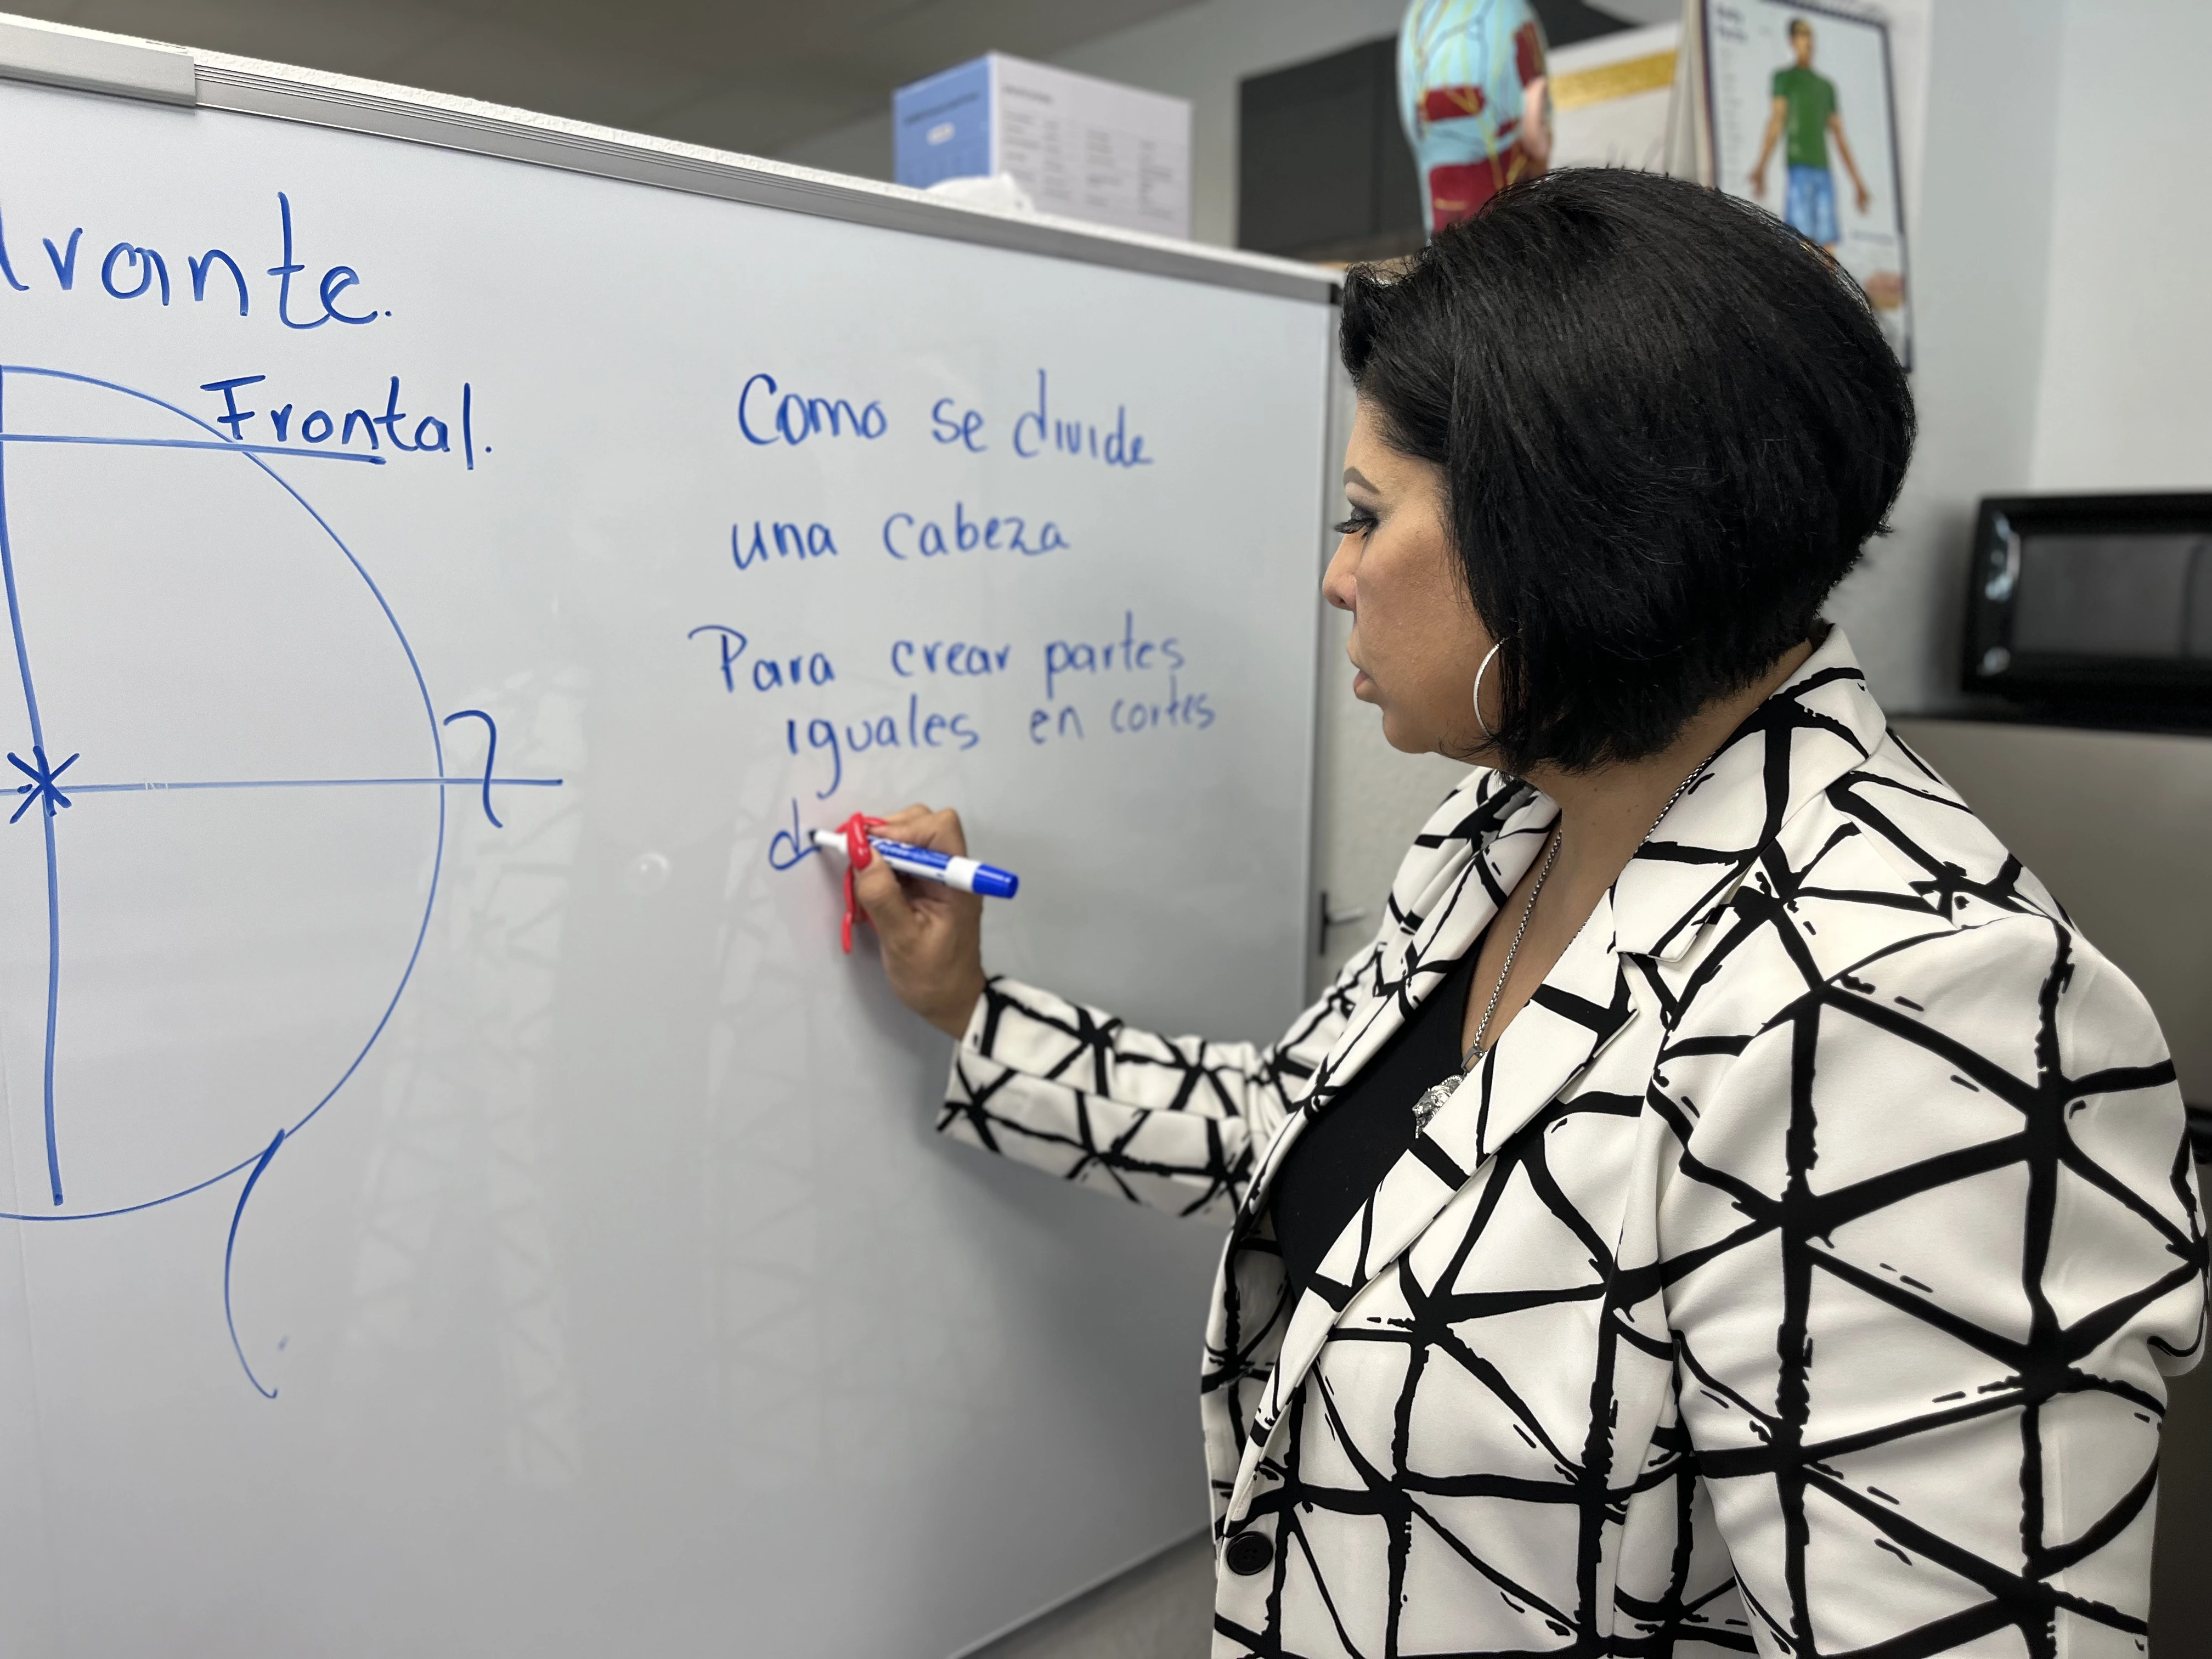 drante.
Frontal.
Como se divide
una cabeza
Para crear partes
iguales en cortes
d